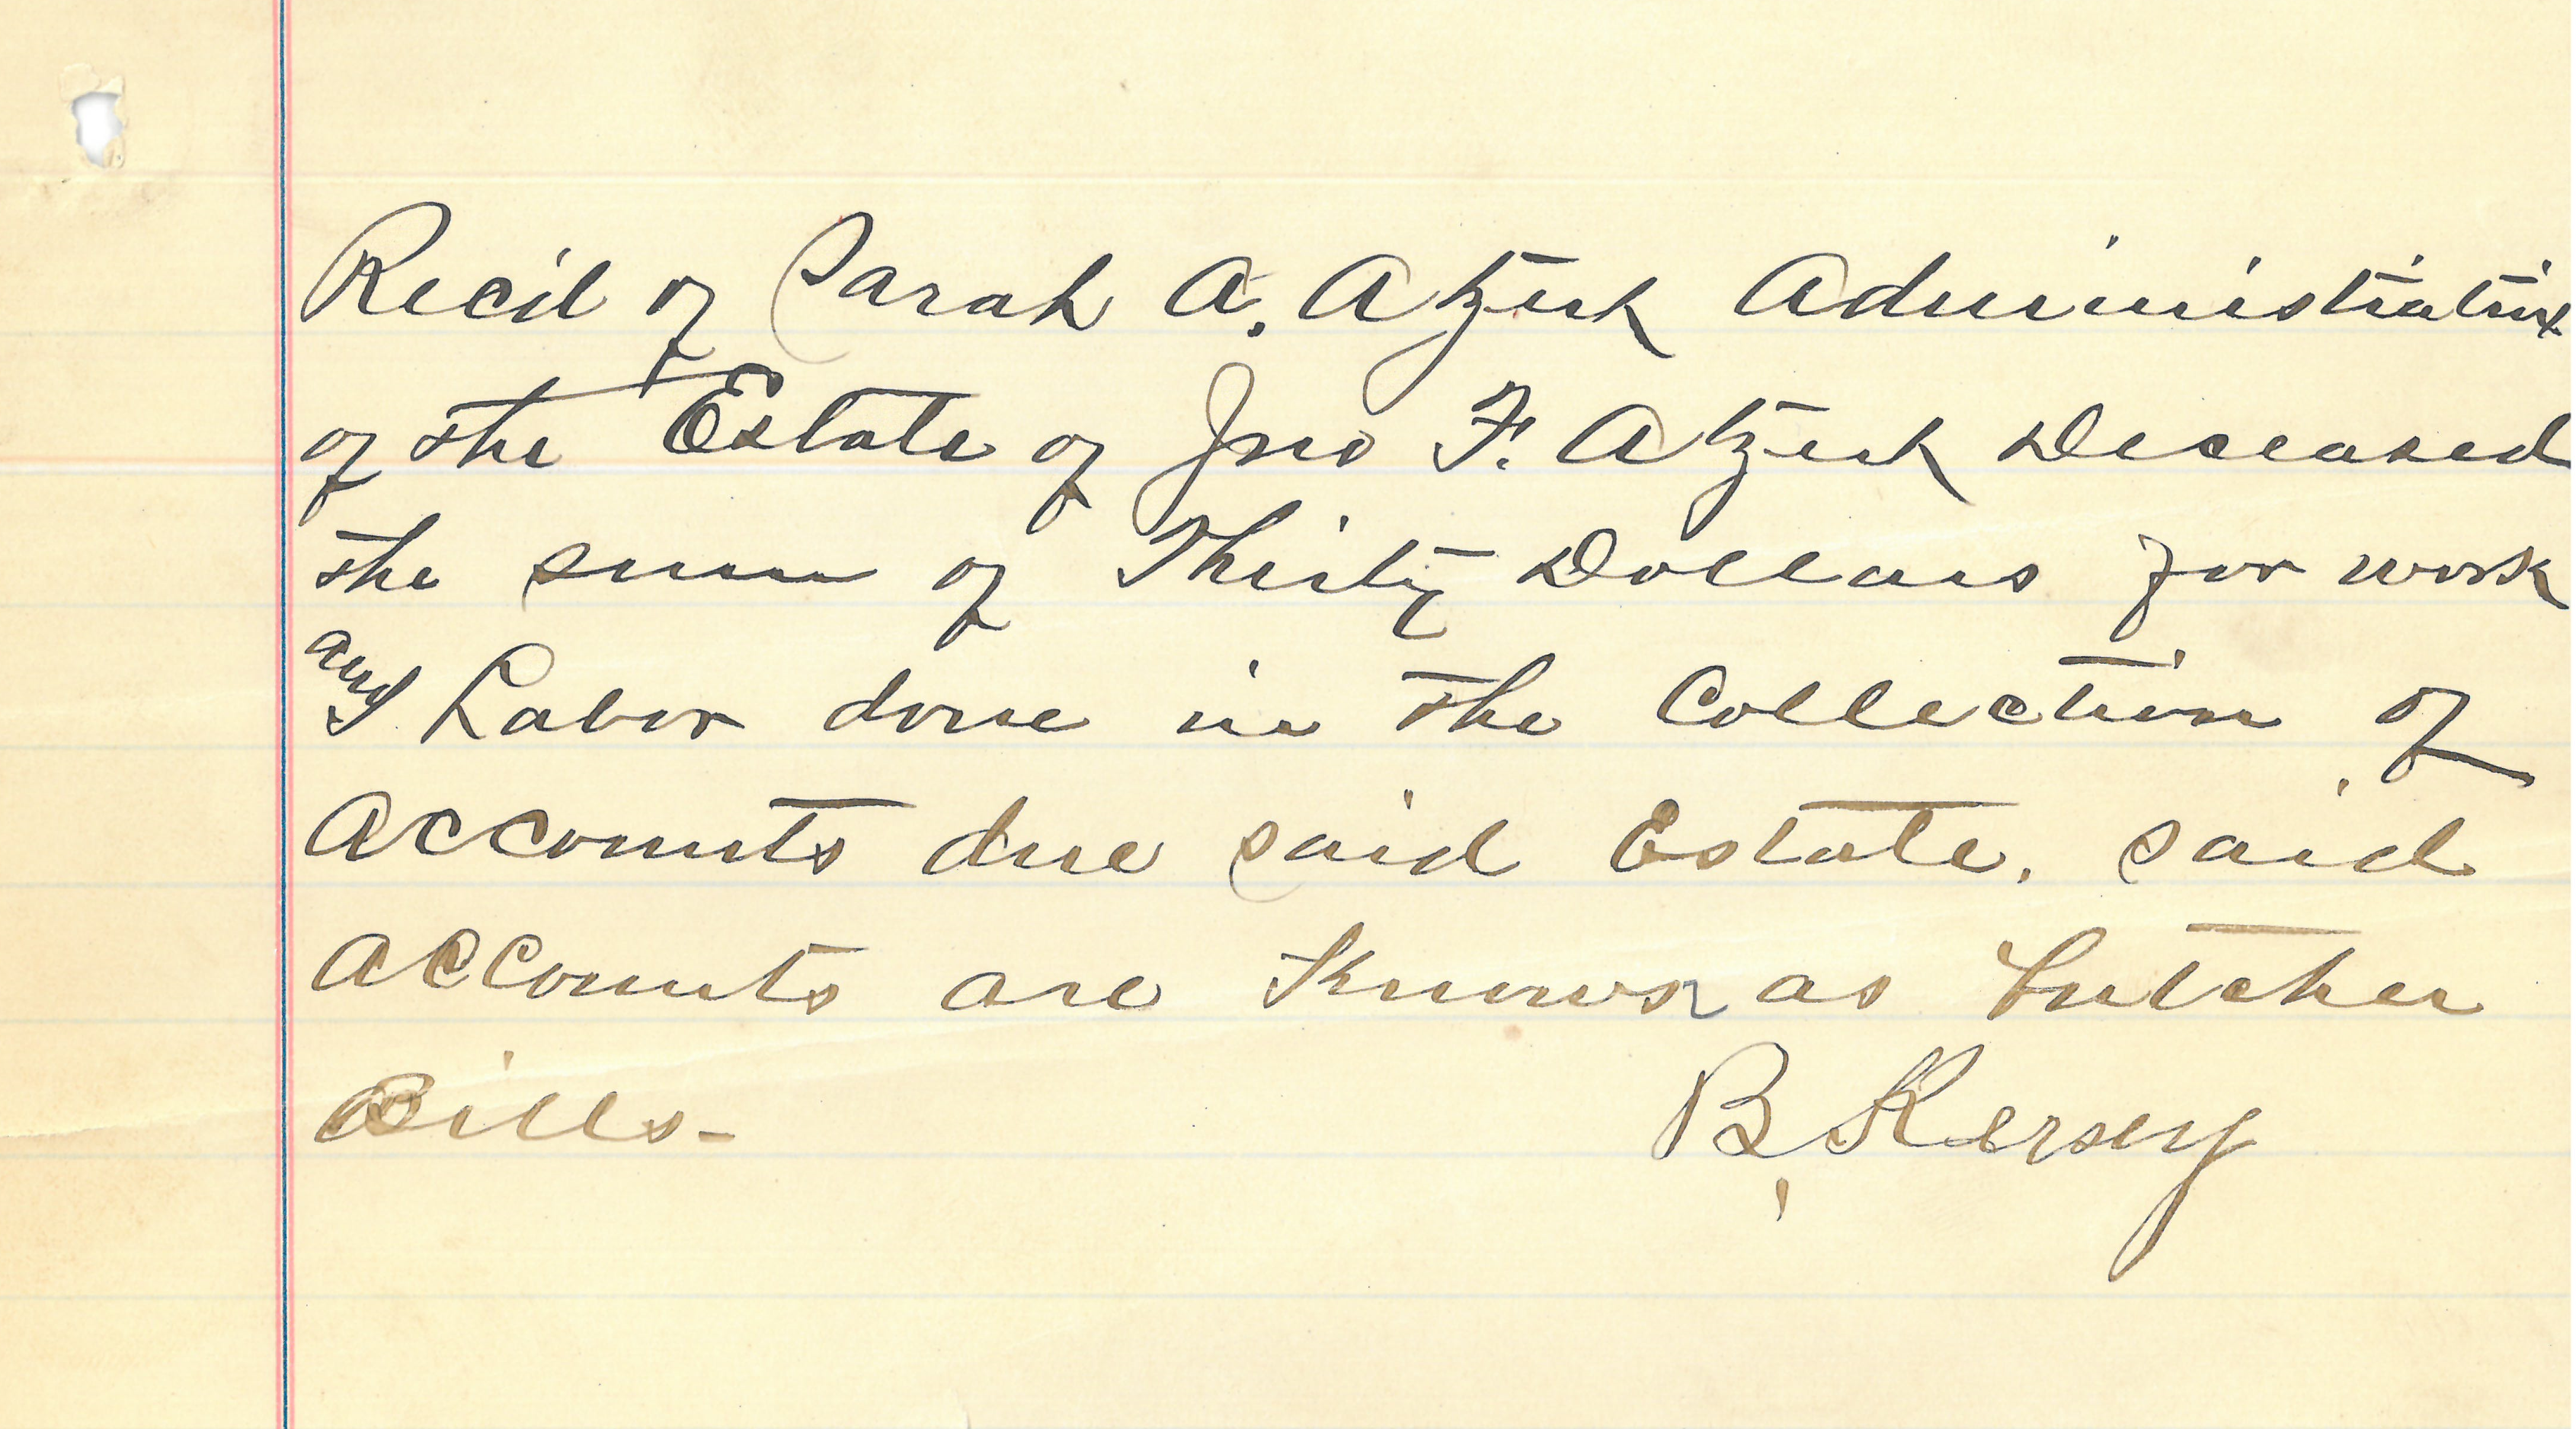 Rec'd of Sarah A. Atzert Administratrix
of the Estate of Jno F. Atzert Deceased
the sum of Thirty Dollars for work
and Labor done in the Collection of
Accounts due said Estate. said
Accounts are Known as butcher
Bills-
B, Kersey